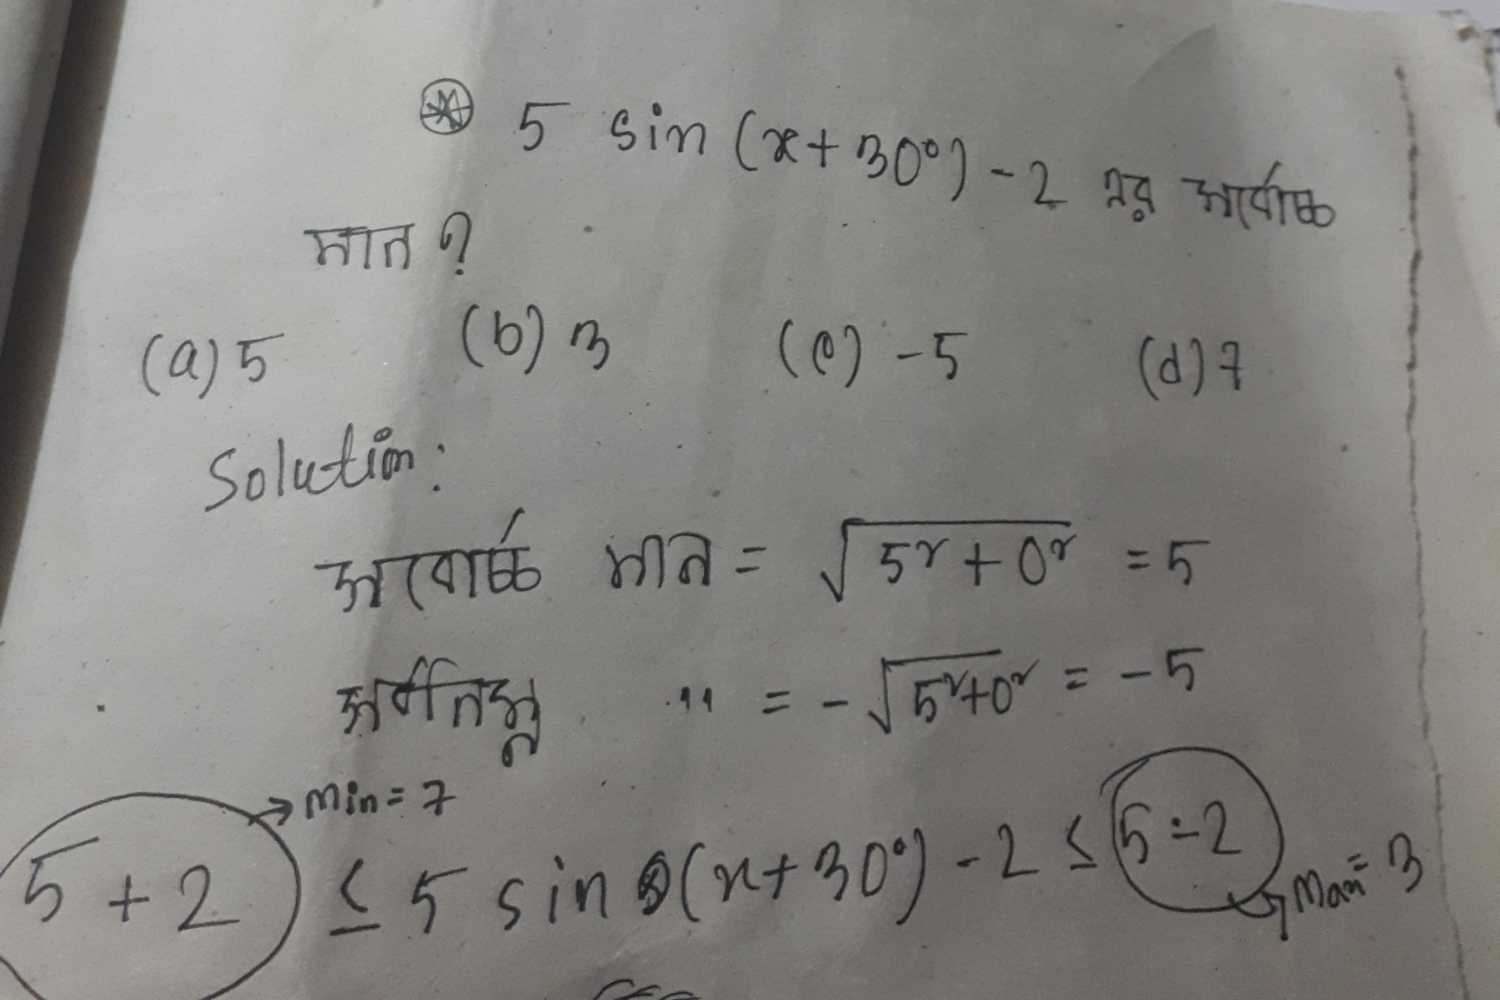 5 sin (x+30°) - 2 এর সর্বোচ্চ
মান ?
(a) 5 (b) 3 (c) -5 (d) 7
Solution:
সর্বোচ্চ মান = √5² + 0² = 5
সর্বনিম্ন " = -√5²+0² = -5
Min = 7
5 + 2 ≤ 5 sin (x+30°) - 2 ≤ 5 - 2
Max = 3